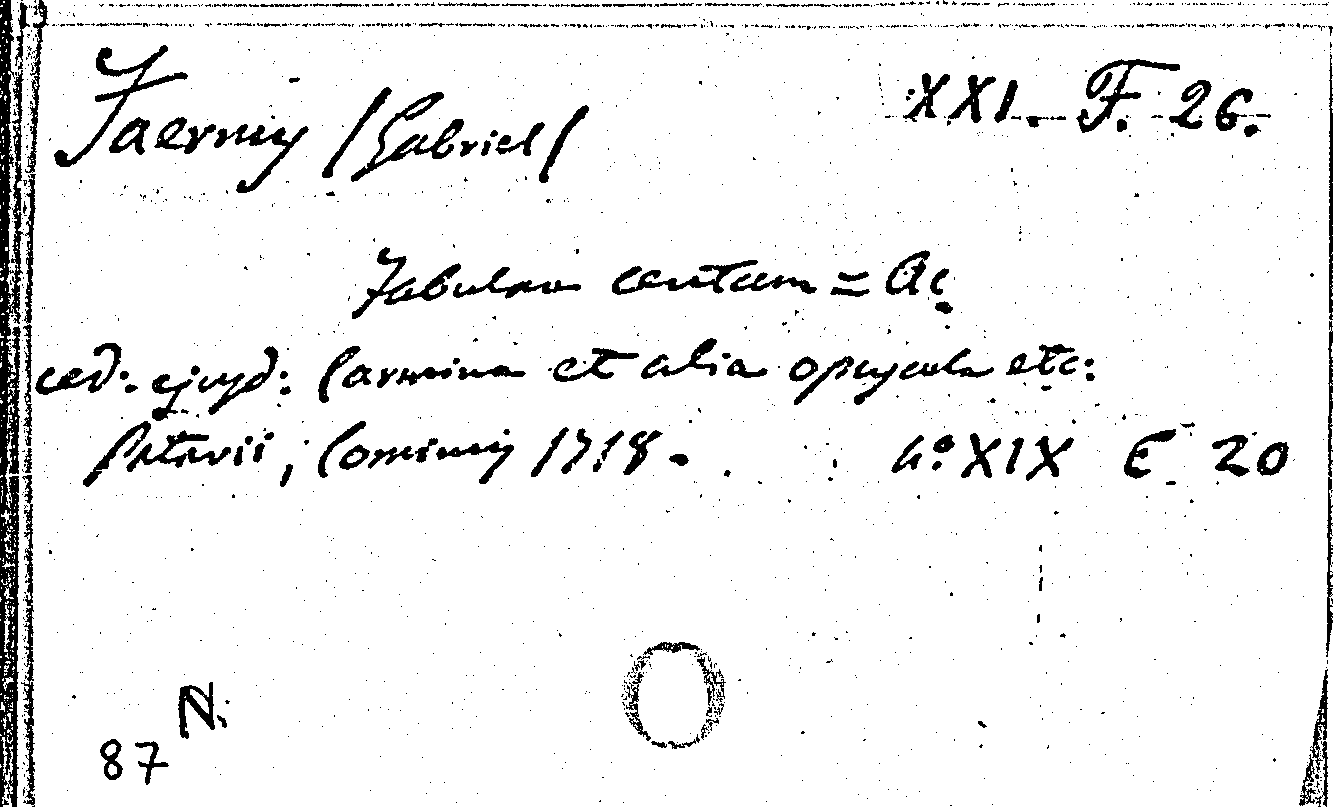 Faernus /Gabriel/ XXI. F. 26.
Fabulae centum = Ac
ced. ejusd: Carmina et alia opuscula etc:
Patavii, Cominus 1718. 4º XIX E 20
N.
87